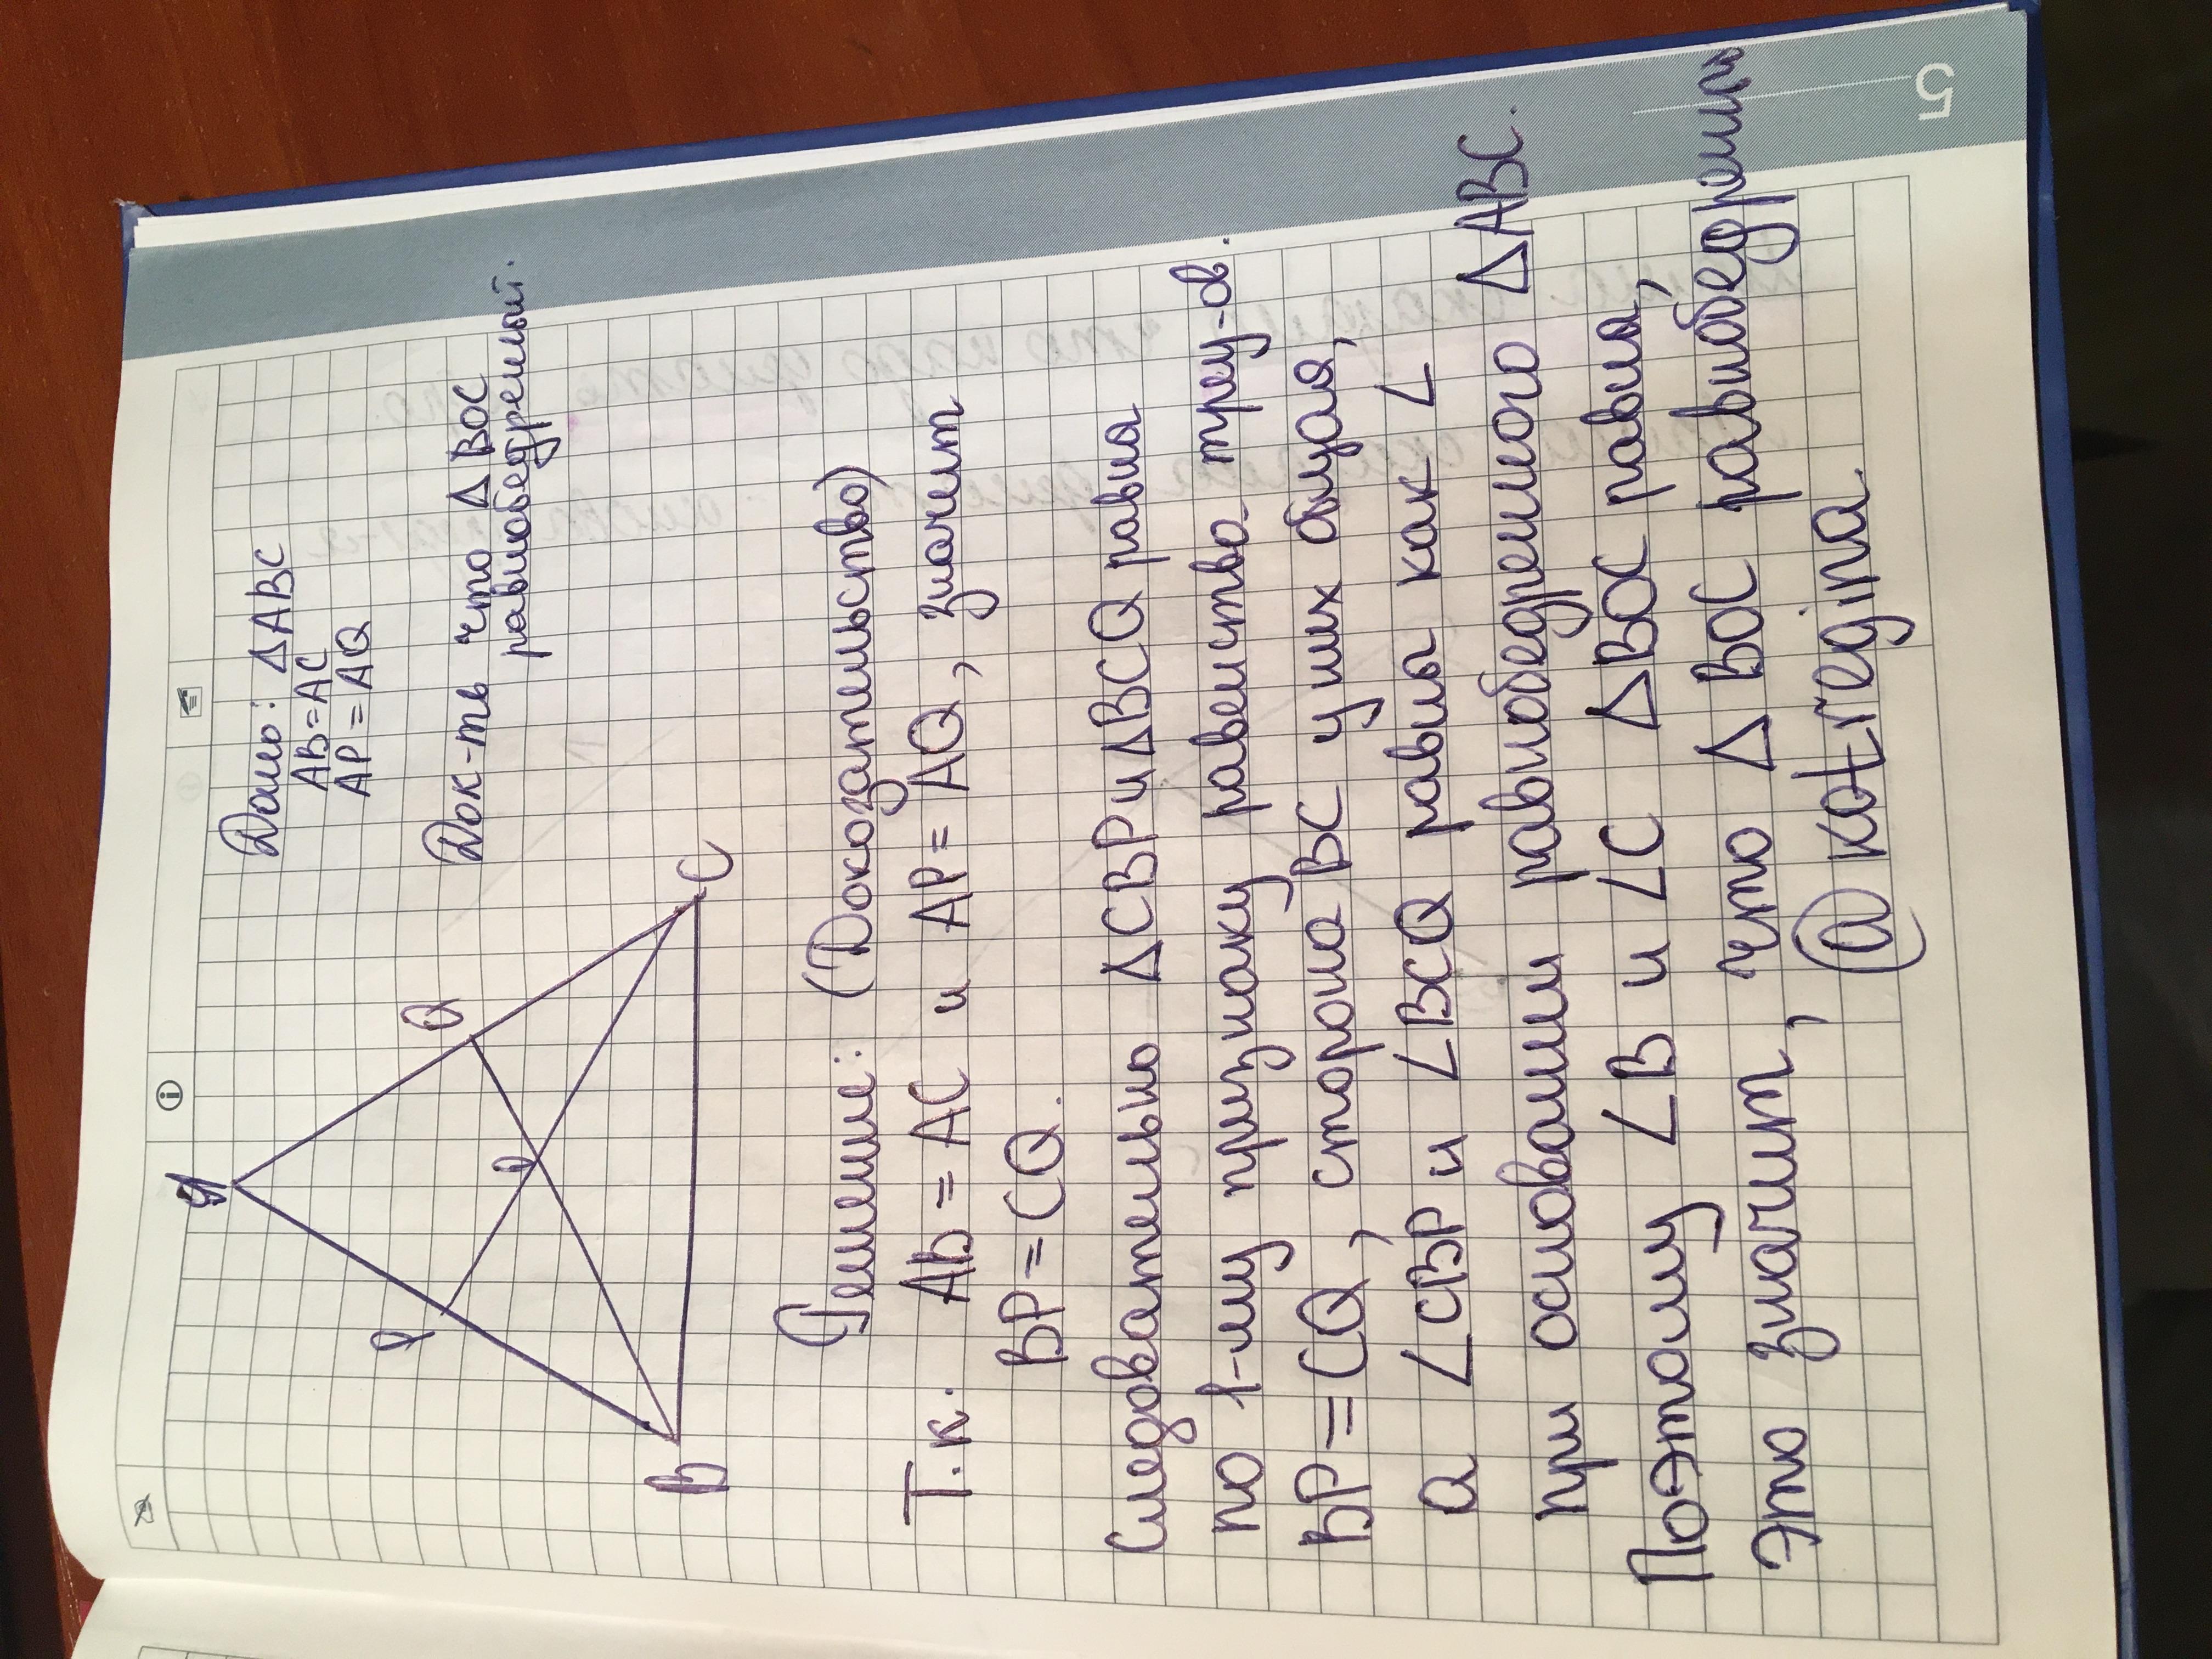 Дано: ΔABC
AB=AC
AP=AQ
Док-ть что Δ BOC
равнобедренный.
A
Q
P
O
B
C
Решение: (Доказательство)
Т.к. AB=AC и AP=AQ, значит
BP=CQ.
Следовательно ΔCBP и ΔBCQ равны
по 1-му признаку равенства треу-ов.
BP=CQ, сторона BC у них общая,
а ∠CBP и ∠BCQ равны как ∠
при основании равнобедренного ΔABC.
Поэтому ∠B и ∠C ΔBOC равны,
это значит, что Δ BOC равнобедренный
@kotregina
5